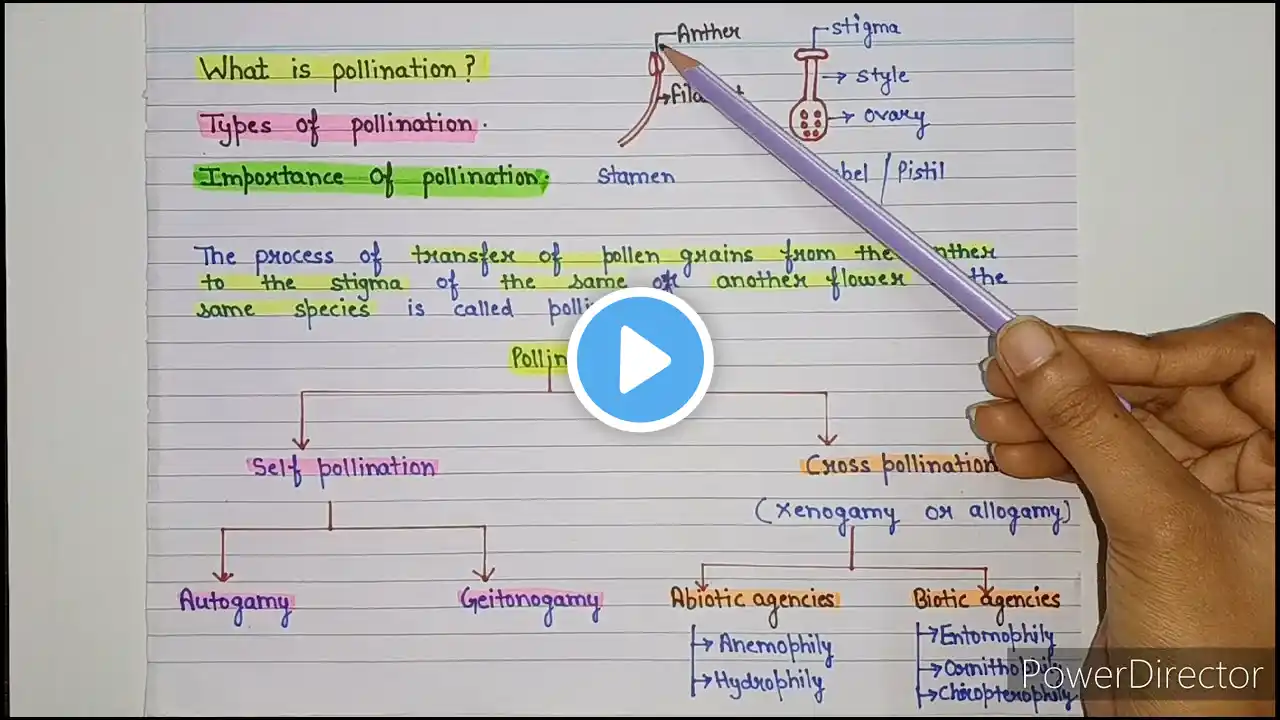 Anther
stigma
What is pollination?
style
Types of pollination.
ovary
Importance Of pollination.
Stamen
/ Pistil
The process of transfer of pollen grains from the
to the stigma of the same or another flower the
same species is called
Self pollination
Cross pollination
(Xenogamy or allogamy)
Autogamy
Geitonogamy
Abiotic agencies
Biotic agencies
→ Anemophily
→ Entomophily
→ Hydrophily
→ Ornithophily
→ Chiropterophily
PowerDirector